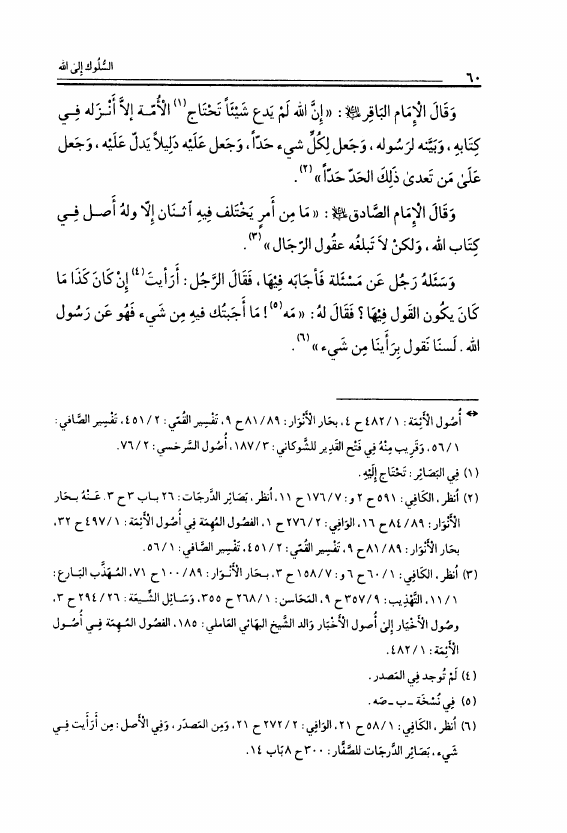 السُّلُوك إلى الله
٦٠
وَقَالَ الْإمَام البَاقِر ﷺ : « إنَّ الله لَمْ يَدع شَيْئَاً تَحْتَاج(١) الْأُمّـة إلاَّ أَنْـزَله فـي
كِتَابهِ ، وَبَيَّنه لرَسُوله ، وَجَعل لِكُلِّ شيء حَدّاً ، وَجَعل عَلَيْه دَلِيلاً يَدلّ عَلَيْه ، وَجَعل
عَلَىٰ مَن تَعدىٰ ذَلِكَ الحَدّ حَدّاً »(٢).
وَقَالَ الْإمَام الصَّادق : « مَا مِن أَمرٍ يَخْتَلف فيهِ ٱثـنَان إلّا ولهُ أَصـل فـي
كِتَاب الله ، وَلكنْ لاَ تَبلغُه عقُول الرّجَال »(٣).
وَسَئلهُ رَجُل عَن مَسْئلة فَأَجابَه فِيْهَا ، فَقَالَ الرَّجُل : أَرأيتَ(٤) إنْ كَانَ كَذَا مَا
كَانَ يكُون القَول فِيْهَا ؟ فَقَالَ لهُ : « مَه(٥)! مَا أَجبتُك فيهِ مِن شَيء فَهُو عَن رَسُول
الله . لَسنَا نَقول بِرَأْينَا مِن شَيء »(٦).
⇔ أُصُول الْأَئِمَة : ٤٨٢/١ ح ٤، بحَار الْأَنْوَار: ٨١/٨٩ ح ٩، تَفْسِير القُمّي: ٤٥١/٢، تَفْسِير الصَّافي:
٥٦/١، وَقَريب مِنْهُ فِي فَتْح القَدِير للشَّوكاني: ١٨٧/٣، أُصُول السَّرخسي: ٧٦/٢.
(١) فِي البَصَائِر: تَحْتَاج إلَيْهِ.
(٢) أنظر، الكَافِي: ٥٩١ ح ٢ و: ١٧٦/٧ ح ١١، أنظر، بَصَائِر الدَّرجَات: ٢٦ بـاب ٣ ح ٣. عَـنْهُ بـحَار
الْأَنْوَار: ٨٤/٨٩ ح ١٦، الوَافِي: ٢٧٦/٢ ح ١، الفصُول المُهِمَة فِي أُصُول الْأَئِمَة: ٤٩٧/١ ح ٣٢،
بحَار الْأَنْوَار: ٨١/٨٩ ح ٩، تَفْسِير القُمّي: ٤٥١/٢، تَفْسِير الصَّافي: ٥٦/١.
(٣) أنظر، الكَافِي: ٦٠/١ ح ٦ و: ١٥٨/٧ ح ٣، بـحَار الْأَنْـوَار: ١٠٠/٨٩ ح ٧١، المُـهَذَّب البَـارع:
١١/١، التَّهْذِيب: ٣٥٧/٩ ح ٩، المَحَاسن: ٢٦٨/١ ح ٣٥٥، وَسَـائل الشِّـيعَة: ٢٩٤/٢٦ ح ٣،
وصُول الأَخْيَار إلى أُصول الأَخْبَار وَالد الشَّيخ البهَائي العَاملي: ١٨٥، الفصُول المُـهِمَة فِـي أُصُـول
الْأَئِمَة: ٤٨٢/١.
(٤) لَمْ تُوجد فِي المَصدر.
(٥) فِي نُسْخَة ـ ب ـ صَه.
(٦) أنظر، الكَافِي: ٥٨/١ ح ٢١، الوَافِي: ٢٧٢/٢ ح ٢١، وَمِن المَصدَر، وَفِي الأَصل: مِن أَرَأَيت فِـي
شَيء، بَصَائِر الدَّرجَات للصَّفَّار: ٣٠٠ ح ٨ بَاب ١٤.